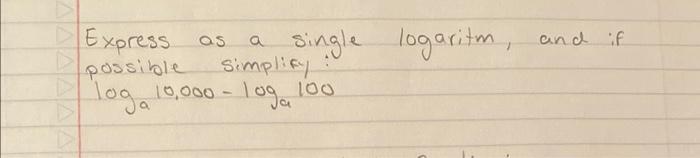 Express as a single logaritm, and if
possible simplify:
logₐ 10,000 - logₐ 100